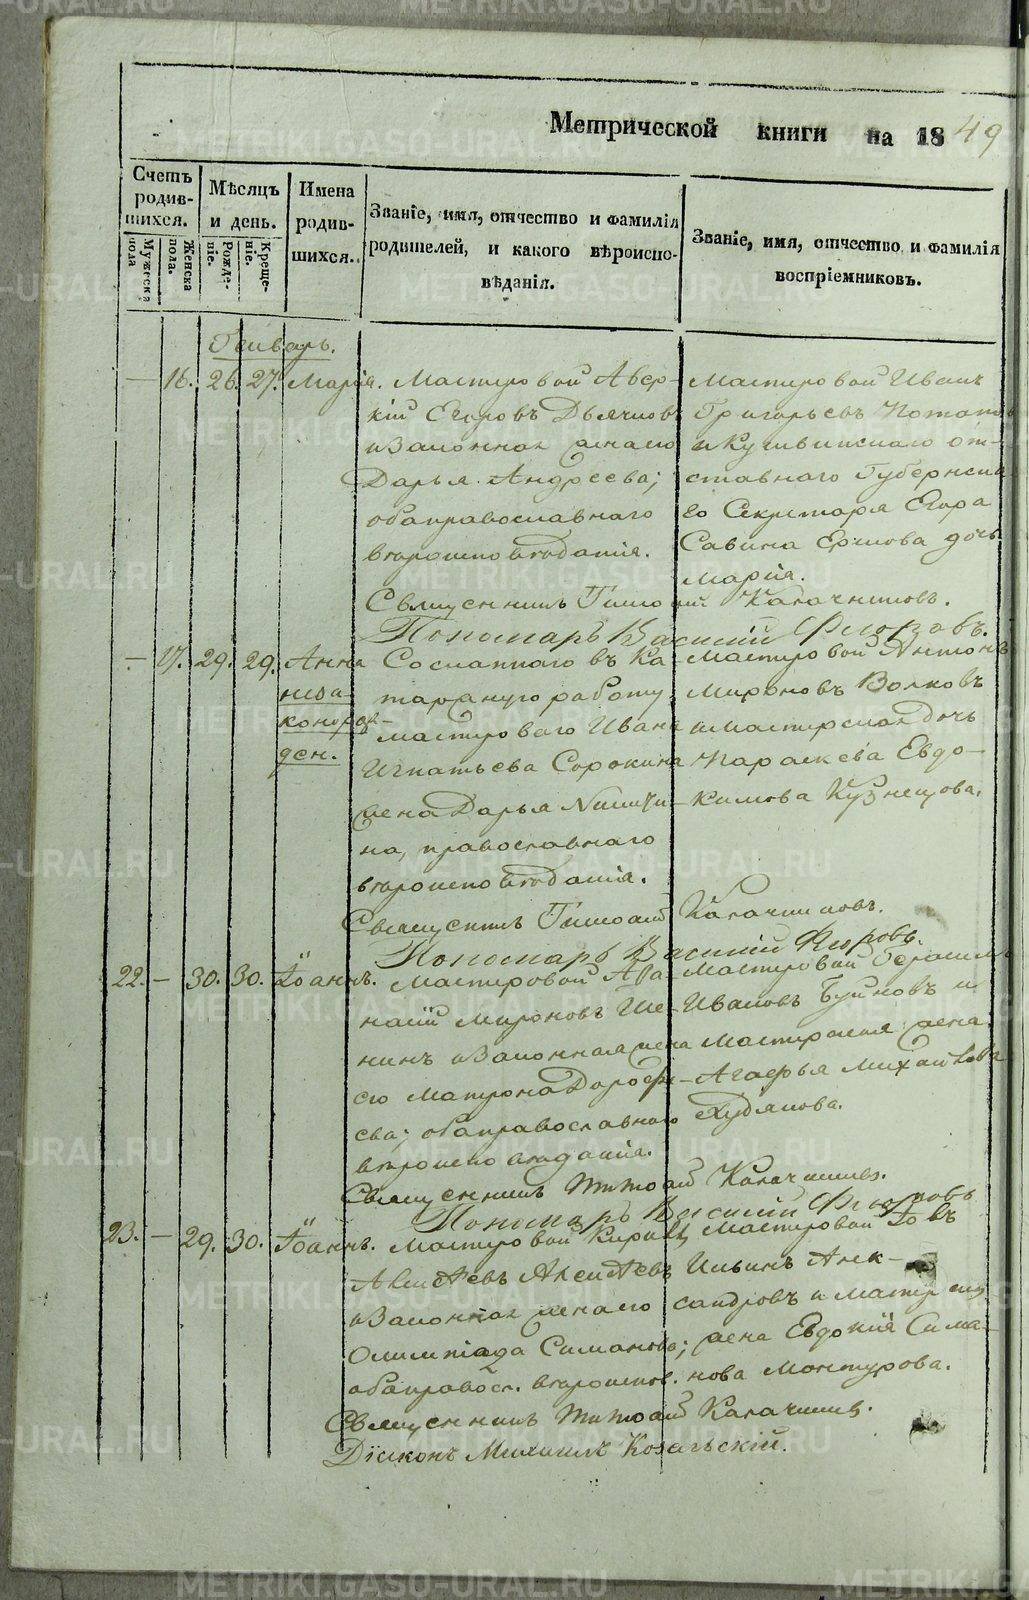 Метрической книги на 1849
Счетъ родившихся.
Мужеска пола
Женска пола.
Мѣсяцъ и день.
Рожденіе.
Крещеніе.
Имена родившихся.
Званіе, имя, отчество и фамилія родителей, и какого вѣроисповѣданія.
Званіе, имя, отчество и фамилія воспріемниковъ.
Генварь.
— 16. 26. 27. Марія.
Мастеровой Авер-
кій Егоровъ Дьячков
и законная жена его
Дарья Андреева;
оба православнаго
вѣроисповѣданія.
Мастеровой Иванъ
Григорьевъ
и Кушвинскаго от-
ставнаго Губернска
го Секретаря Егора
Савина дочь
Марія.
Священникъ Калачниковъ.
Пономарь Василій Флоровъ.
— 17. 29. 29. Анна
неза-
конорож-
ден.
Сосланнаго въ Ка-
таржную работу
мастероваго Ивана
Игнатьева Сорокина
жена Дарья Никити-
на, православнаго
вѣроисповѣданія.
Мастеровой Антонъ
Мироновъ Волковъ
и мастерская дочь
Параскева Евдо-
кимова Кузнецова.
Священникъ Калачниковъ.
Пономарь Василій Флоровъ.
22. — 30. 30. Іоаннъ.
Мастеровой Афа
насій Мироновъ Ше-
нинъ и законная жена
его Матрона Дорофе-
ева; оба православнаго
вѣроисповѣданія.
Мастеровой Герасимъ
Ивановъ Буйновъ и
мастерская жена
Агафья Михайлова
Худякова.
Священникъ Калачниковъ.
Пономарь Василій Флоровъ
23. — 29. 30. Іоаннъ.
Мастеровой Кирилъ
Алексѣевъ Алексѣевъ
и законная жена его
Олимпіада Симонова;
оба правосл. вѣроиспов.
Мастеровой Іовъ
Ильинъ Алек-
сандровъ и мастерск.
жена Евдокія Сима-
нова Монтурова.
Священникъ Калачников.
Діаконъ Михаилъ Козельскій.
METRIKI.GASO-URAL.RU